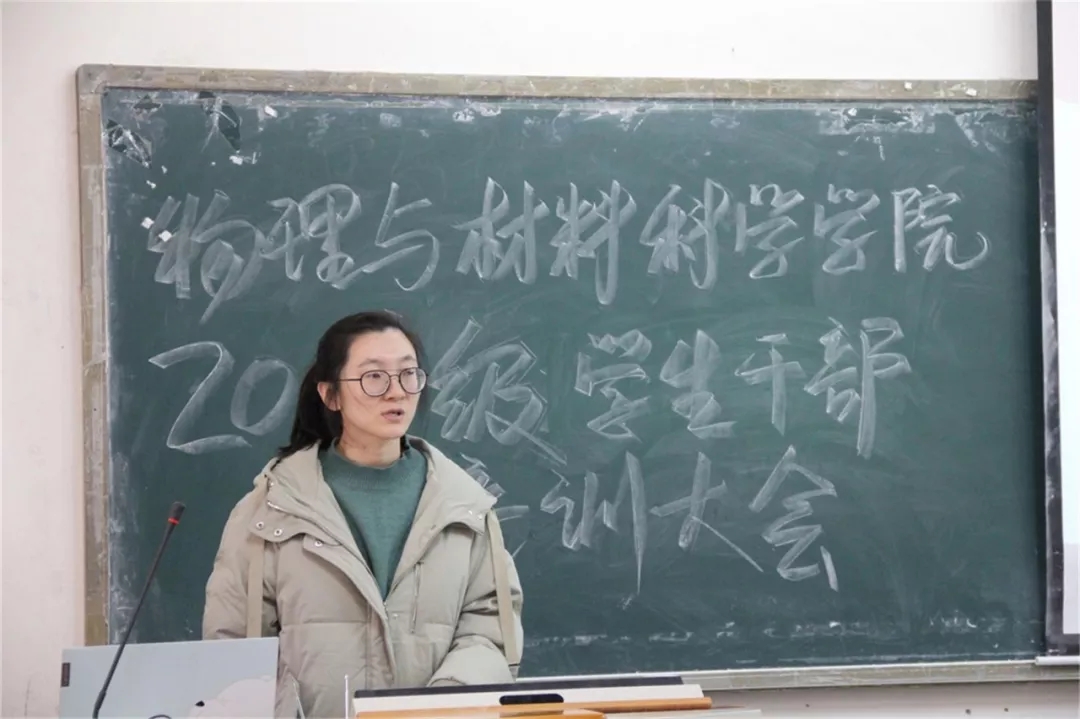 物理与材料科学学院
20级学生干部
训大会